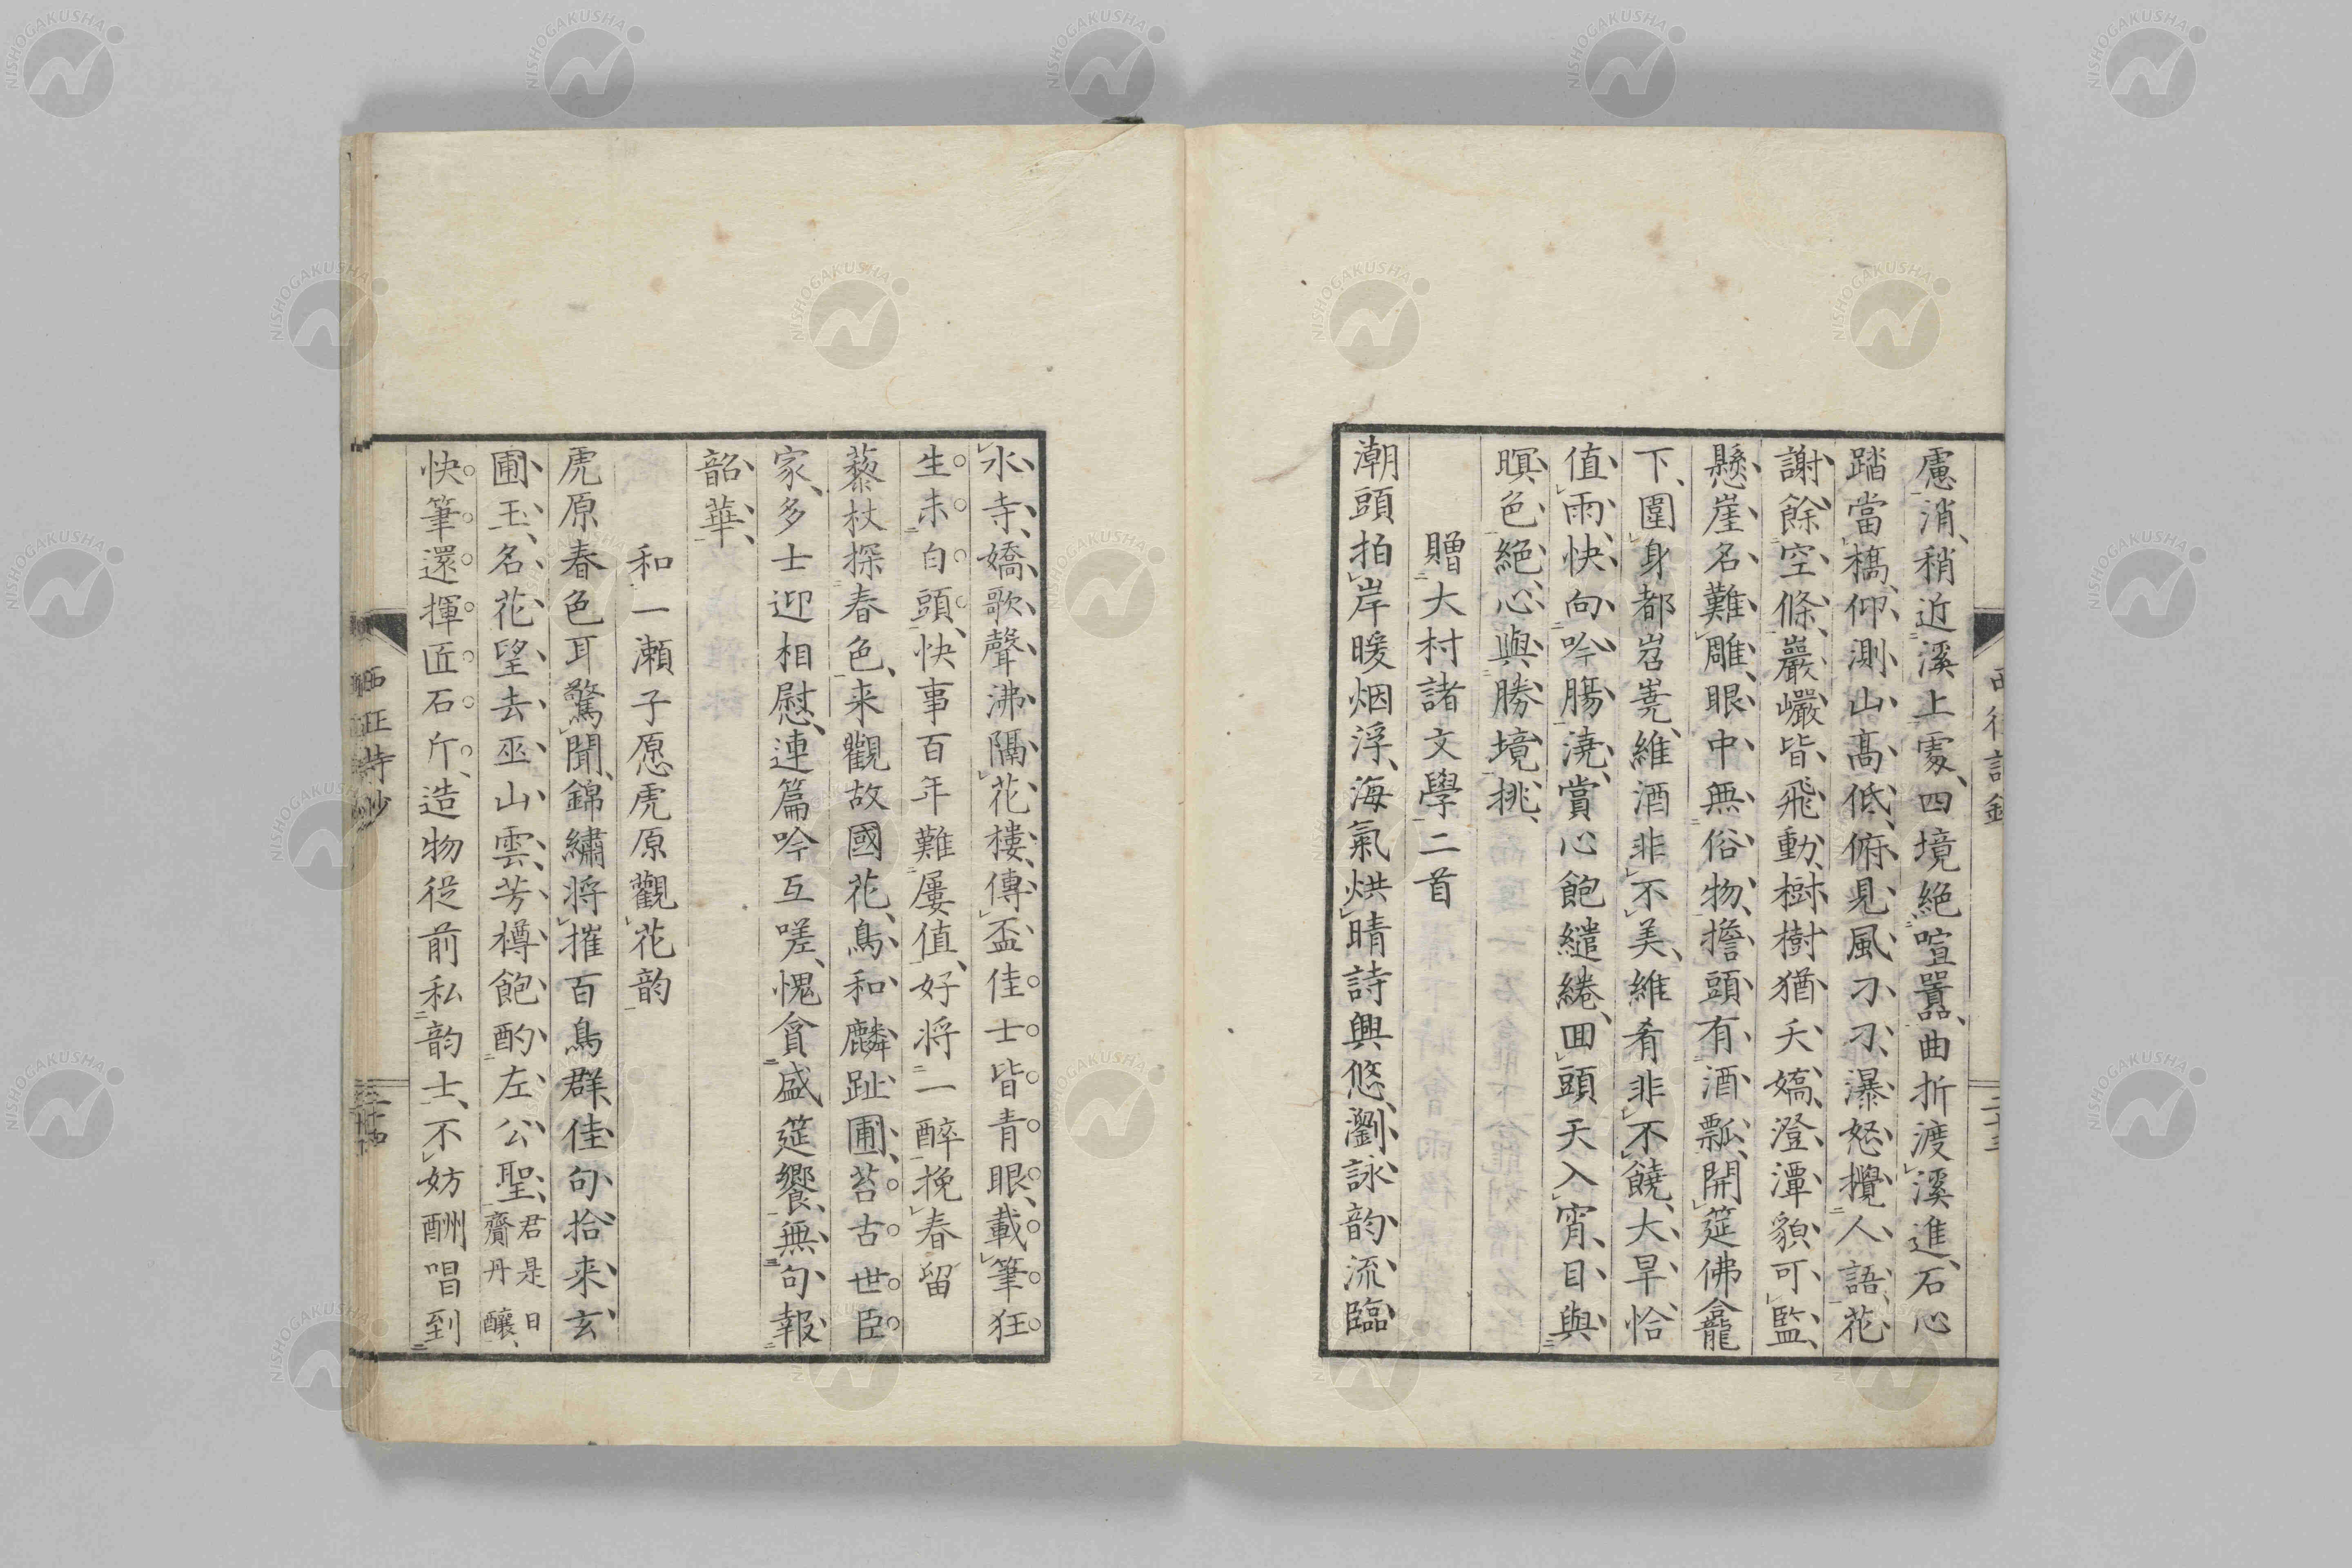 慮消稍近溪上處四境絕喧囂曲折渡溪進石心
踏當橋仰測山高低俯見風刁刁瀑怒攪人語花
謝餘空條巖巗皆飛動樹樹猶夭嬌澄潭貌可監
懸崖名難雕眼中無俗物擔頭有酒瓢開筵佛龕
下圍身都岧嶤維酒非不美維肴非不饒大旱恰
值雨快向吟腸澆賞心飽繾綣回頭天入宵目與
暝色絕心與勝境挑
贈大村諸文學二首
潮頭拍岸暖烟浮海氣烘晴詩興悠瀏詠韵流臨
水寺嬌歌聲沸隔花樓傳盃佳士皆青眼載筆狂
生未白頭快事百年難屢值好將一醉挽春留
藜杖探春色来觀故國花鳥和麟趾圃苔古世臣
家多士迎相慰連篇吟互嗟愧貪盛筵饗無句報
韶華
和一瀬子愿虎原觀花韵
虎原春色耳驚聞錦繡将摧百鳥群佳句拾来玄
圃玉名花望去巫山雲芳樽飽酌左公聖君是日齎丹釀
快筆還揮匠石斤造物從前私韵士不妨酬唱到
西征詩鈔